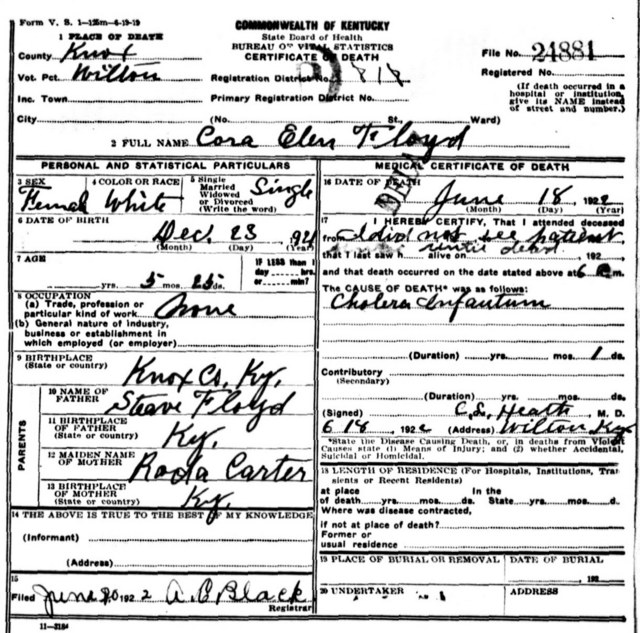 Form V. S. 1-125m-6-19-19
COMMONWEALTH OF KENTUCKY
State Board of Health
BUREAU OF VITAL STATISTICS
CERTIFICATE OF DEATH
1 PLACE OF DEATH
County Knox
Vot. Pct. Wilton
Inc. Town
City (No. St., Ward)
Registration District No. 818
Primary Registration District No.
File No. 24881
Registered No.
(If death occurred in a
hospital or institution,
give its NAME instead
of street and number.)
2 FULL NAME Cora Elen Floyd
PERSONAL AND STATISTICAL PARTICULARS
3 SEX
Femal
4 COLOR OR RACE
White
5 Single
Married
Widowed
or Divorced
(Write the word)
Single
6 DATE OF BIRTH
Dec. 23, 1921
(Month) (Day) (Year)
7 AGE
yrs. 5 mos. 25 ds.
IF LESS than 1
day hrs.
or min.?
8 OCCUPATION
(a) Trade, profession or
particular kind of work none
(b) General nature of industry,
business or establishment in
which employed (or employer)
9 BIRTHPLACE
(State or country)
Knox Co. Ky.
PARENTS
10 NAME OF
FATHER
Steave Floyd
11 BIRTHPLACE
OF FATHER
(State or country)
Ky.
12 MAIDEN NAME
OF MOTHER
Roda Carter
13 BIRTHPLACE
OF MOTHER
(State or country)
Ky
14 THE ABOVE IS TRUE TO THE BEST OF MY KNOWLEDGE
(Informant)
(Address)
15
Filed June 20 1922 A. C. Black
Registrar
11-3184
MEDICAL CERTIFICATE OF DEATH
16 DATE OF DEATH
June 18, 1922
(Month) (Day) (Year)
17 I HEREBY CERTIFY, That I attended deceased
from I did not see patient
that I last saw h alive on , 192
and that death occurred on the date stated above at 6 m.
The CAUSE OF DEATH* was as follows:
Cholera Infantum
(Duration) yrs. mos. 1 ds.
Contributory
(Secondary)
(Duration) yrs. mos. ds.
(Signed) C. S. Heath, M. D.
6-18, 1922 (Address) Wilton Ky
*State the Disease Causing Death, or, in deaths from Violent
Causes state (1) Means of Injury; and (2) whether Accidental,
Suicidal or Homicidal.
18 LENGTH OF RESIDENCE (For Hospitals, Institutions, Tran
sients or Recent Residents)
at place In the
of death yrs. mos. ds. State yrs. mos. d.
Where was disease contracted,
if not at place of death?
Former or
usual residence
19 PLACE OF BURIAL OR REMOVAL
DATE OF BURIAL
, 192
20 UNDERTAKER
ADDRESS